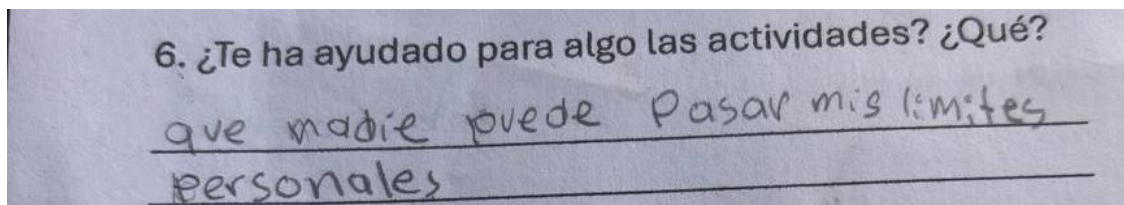 6. ¿Te ha ayudado para algo las actividades? ¿Qué?
que madie puede Pasar mis limites
personales